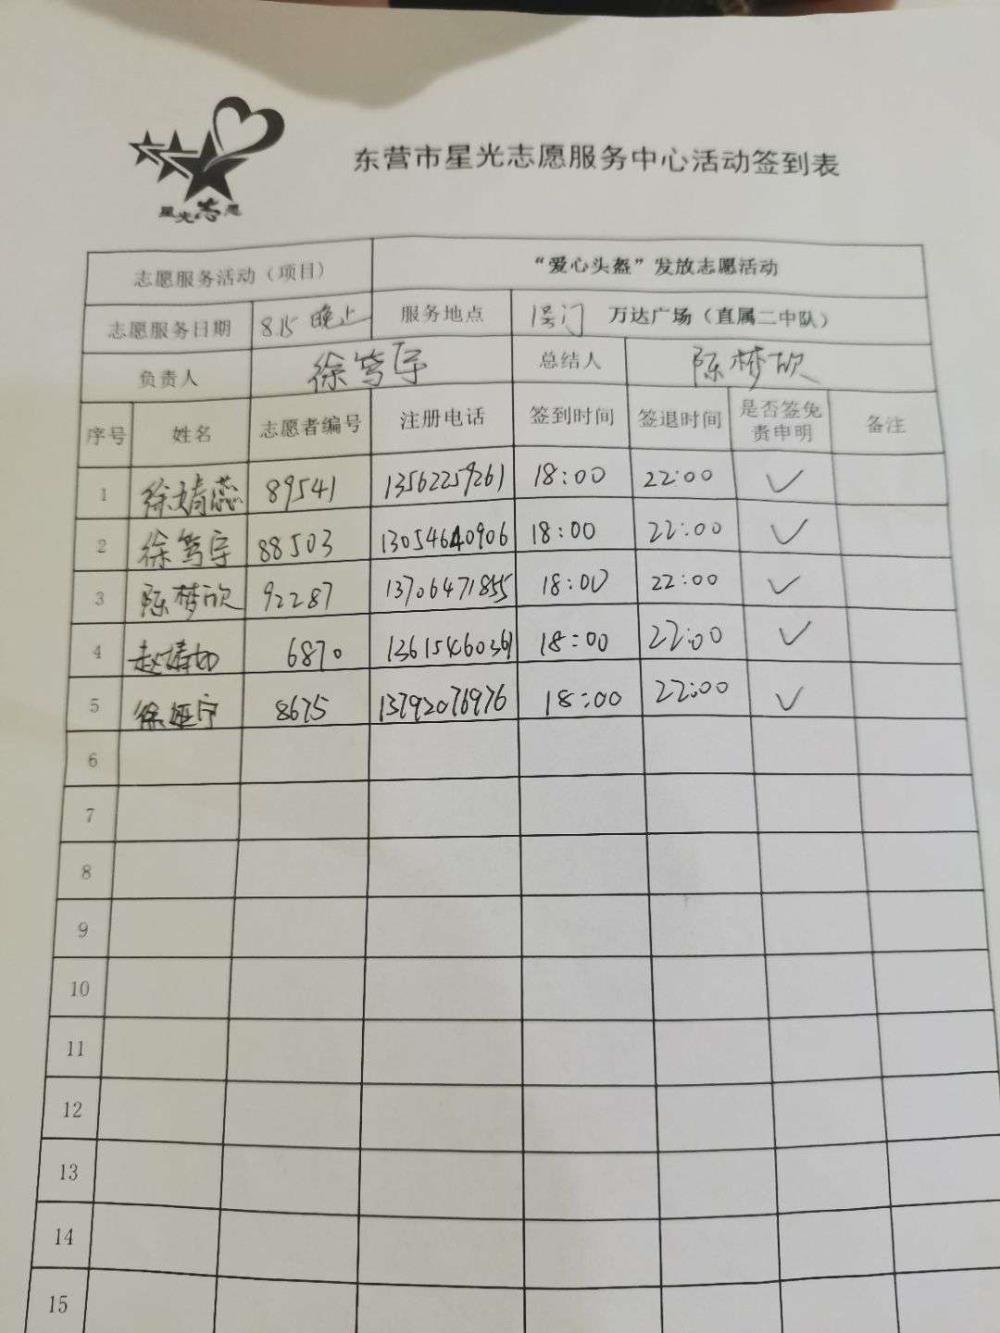 星光志愿
东营市星光志愿服务中心活动签到表
志愿服务活动（项目） “爱心头盔”发放志愿活动
志愿服务日期 8.15 晚上 服务地点 1号门 万达广场（直属二中队）
负责人 徐笃宇 总结人 陈梦欣
序号 姓名 志愿者编号 注册电话 签到时间 签退时间 是否签免责申明 备注
1 徐婧蕊 89541 13562259261 18:00 22:00 ✓
2 徐笃宇 88503 13054640906 18:00 22:00 ✓
3 陈梦欣 92287 13706471855 18:00 22:00 ✓
4 赵婧如 6870 13615460361 18:00 22:00 ✓
5 徐 宁 8675 13792076976 18:00 22:00 ✓
6
7
8
9
10
11
12
13
14
15